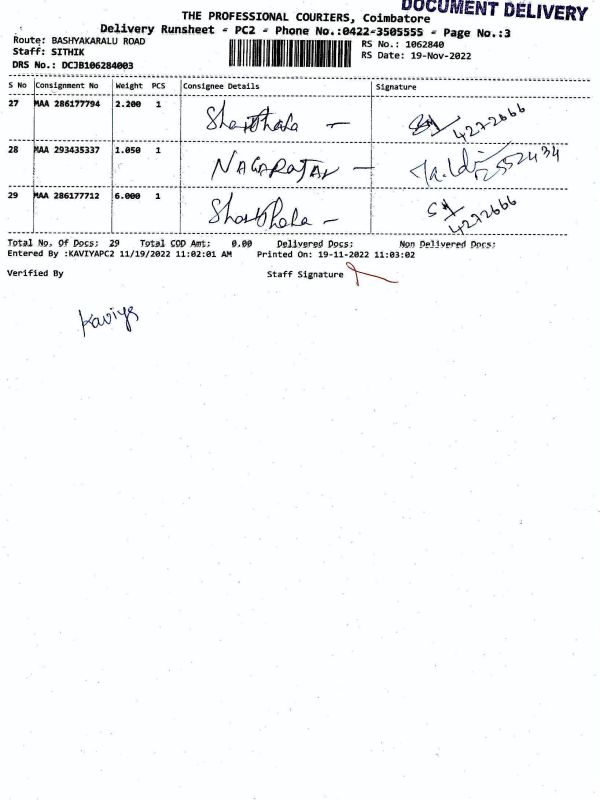 DOCUMENT DELIVERY
THE PROFESSIONAL COURIERS, Coimbatore
Delivery Runsheet - PC2 - Phone No.:0422-3505555 - Page No.:3
Route: BASHYAKARALU ROAD
Staff: SITHIK
DRS No.: DCJB106284003
RS No.: 1062840
RS Date: 19-Nov-2022
S No Consignment No Weight PCS Consignee Details Signature
27 MAA 286177794 2.200 1
4272666
28 MAA 293435337 1.050 1 NAGARAJAN -
29 MAA 286177712 6.000 1
4272666
Total No. Of Docs: 29 Total COD Amt: 0.00 Delivered Docs: Non Delivered Docs:
Entered By :KAVIYAPC2 11/19/2022 11:02:01 AM Printed On: 19-11-2022 11:03:02
Verified By Staff Signature
Kaviya